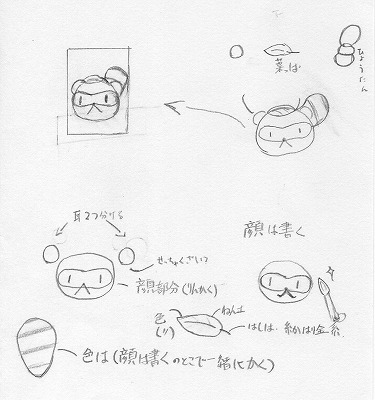 葉っぱ
ひょうたん
耳2つ分ける
せっちゃくざい
顔部分(りんかく)
顔は書く
色
ねん土
はしは、糸かはり金系
色は(顔は書くのとこで一緒にかく)